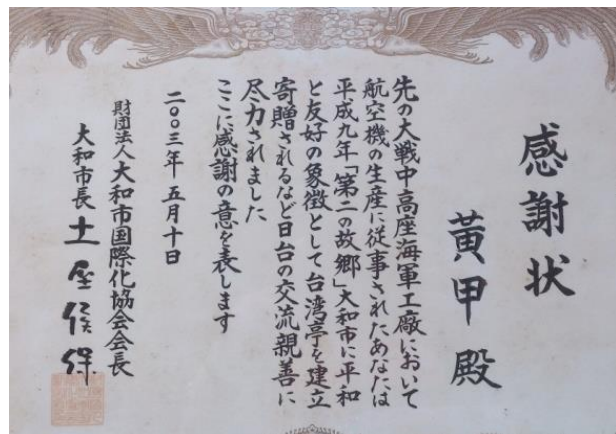 感謝状
黃甲殿
先の大戦中高座海軍工廠において
航空機の生産に従事されたあなたは
平成九年「第二の故郷」大和市に平和
と友好の象徴として台湾亭を建立
寄贈されるなど日台の交流親善に
尽力されました
ここに感謝の意を表します
二〇〇三年五月十日
財団法人大和市国際化協会会長
大和市長 土屋侯保